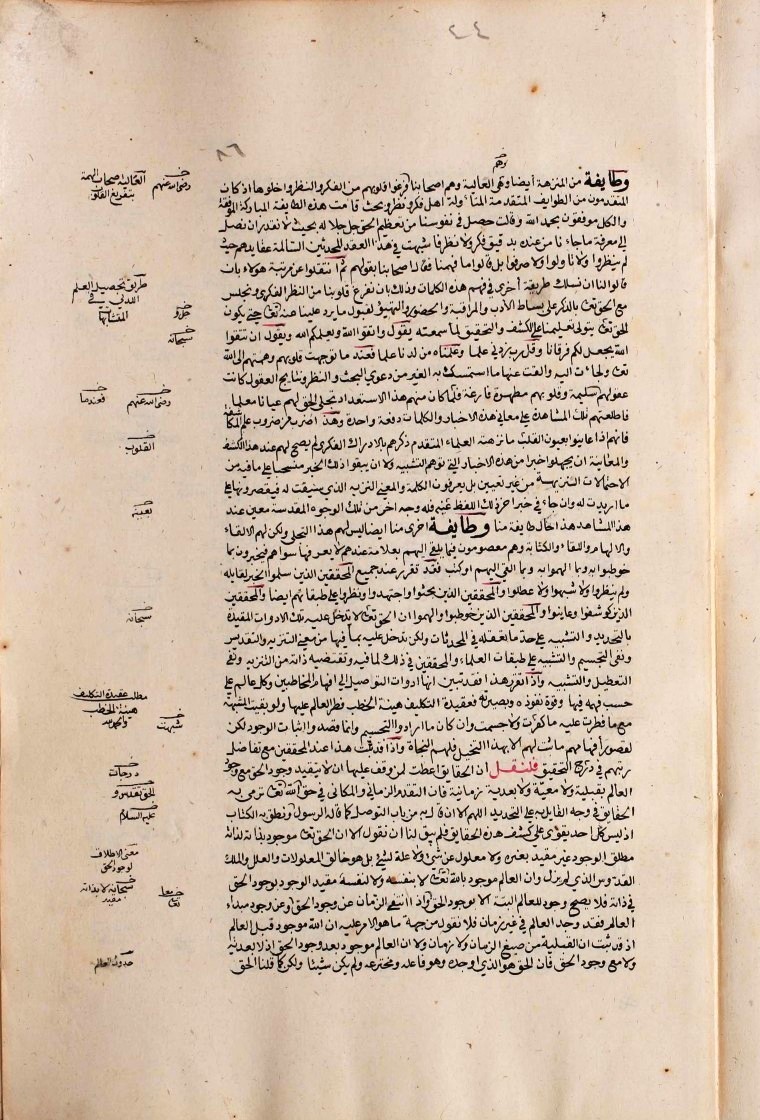 ٢٤
٨٦
وهم
وطايفة من المنزهة أيضا وهي العالية وهم اصحابنا فرغوا قلوبهم من الفكر والنظر واخلوها اذ كان
المتقدمون من الطوايف المتقدمة المتأولة اهل فكر ونظر وبحث قامت هذه الطايفة المباركة الموفقة
والكل موفقون بحمد الله وقالت حصل في نفوسنا من تعظيم الحق جل جلاله بحيث لا نقدر ان نصل
الى معرفة ما جاءنا من عنده بدقيق فكر ولا نظر فاشبهت في هذا العقد المحدثين السالمة عقايدهم حيث
لم ينظروا ولا تاولوا ولا صرفوا بل قالوا ما فهمنا فقال اصحابنا بقولهم ثم انتقلوا عن مرتبة هولاء بان
قالوا لنا ان نسلك طريقة أخرى في فهم هذه الكلمات وذلك بان نفرغ قلوبنا من النظر الفكري ونجلس
مع الحق تع بالذكر على بساط الأدب والمراقبة والحضور والتهيئ لقبول ما يرد علينا منه تع حتى يكون
الحق تع يتولى تعليمنا على الكشف والتحقيق لما سمعته يقول واتقوا الله ويعلمكم الله ويقول ان تتقوا
الله يجعل لكم فرقانا وقل رب زدني علما وعلمناه من لدنا علما فعند ما توجهت قلوبهم وهممهم الى الله
تع ولجات اليه والقت عنها ما استمسك به الغير من دعوى البحث والنظر ونتايج العقول كانت
عقولهم سليمة وقلوبهم مطهرة فارغة فلما كان منهم هذا الاستعداد تجلى الحق لهم عيانا معلما
فاطلعتهم تلك المشاهدة على معاني هذه الاخبار والكلمات دفعة واحدة وهذا ضرب من ضروب علم المكاشفة
فانهم اذا عاينوا بعيون القلب ما نزهته العلماء المتقدم ذكرهم بالادراك الفكري لم يصح لهم عند هذا الكشف
والمعاينة ان يجهلوا خبرا من هذه الاخبار التي توهم التشبيه ولا ان يبقوا ذلك الخبر منسحبا على ما فيه من
الاحتمالات التنزيهية من غير تعيين بل يعرفون الكلمة والمعنى النزيه الذي سيقت له فيقصرونها على
ما اريدت له وان جاء في خبر اخر ذلك اللفظ عينه فله وجه اخر من تلك الوجوه المقدسة معين عند
هذا المشاهد هذا حال طايفة منا وطايفة اخرى منا ايضا ليس لهم هذا التجلي ولكن لهم الالقاء
والالهام واللقاء والكتابة وهم معصومون فيما يلقى اليهم بعلامة عندهم لا يعرفها سواهم فيخبرون بما
خوطبوا به وبما الهموا به وبما القى اليهم او كتب فقد تقرر عند جميع المحققين الذين سلموا الخبر لقايله
ولم ينظروا ولا شبهوا ولا عطلوا والمحققين الذين بحثوا واجتهدوا ونظروا على طبقاتهم ايضا والمحققين
الذين كوشفوا وعاينوا والمحققين الذين خوطبوا والهموا ان الحق تع لا تدخل عليه تلك الادوات المقيدة
بالتحديد والتشبيه على حد ما نعقله في المحدثات ولكن تدخل عليه بما فيها من معنى التنزيه والتقديس
ونفي التجسيم والتشبيه على طبقات العلماء والمحققين في ذلك لما فيه وتقتضيه ذاته من التنزيه ونفي
التعطيل والتشبيه واذا تقرر هذا فقد تبين انها ادوات التوصيل الى افهام المخاطبين وكل عالم على
حسب فهمه فيها وقوة نفوذه وبصيرته فعقيدة التكليف هينة الخطب فطر العالم عليها ولو بقيت المشبهة
مع ما فطرت عليه ما كفرت ولا جسمت وان كان ما ارادوا التجسيم وانما قصدوا اثبات الوجود لكن
لقصور أفهامهم ما ثبت لهم الا بهذا التخيل فلهم النجاة واذا قد ثبت هذا عند المحققين مع تفاضل
رتبهم في درج التحقيق فلنقل ان الحقايق اعطت لمن وقف عليها ان لا يتقيد وجود الحق مع وجود
العالم بقبلية ولا معية ولا بعدية زمانية فان التقدم الزماني والمكاني في حق الله تع ترمي به
الحقايق في وجه القايل به على التحديد اللهم الا ان قال به من باب التوصيل كما قاله الرسول ونطق به الكتاب
اذ ليس كل احد يقوى على كشف هذه الحقايق فلم يبق لنا ان نقول الا ان الحق تع موجود بذاته لذاته
مطلق الوجود غير مقيد بغيره ولا معلول عن شئ ولا علة لشئ بل هو خالق المعلولات والعلل والملك
القدوس الذي لم يزل وان العالم موجود بالله تع لا بنفسه ولا لنفسه مقيد الوجود بوجود الحق
في ذاته فلا يصح وجود للعالم البتة الا بوجود الحق واذ انتفى الزمان عن وجود الحق وعن وجود مبداء
العالم فقد وجد العالم في غير زمان فلا نقول من جهة ما هو الامر عليه ان الله موجود قبل العالم
اذ قد ثبت ان القبلية من صيغ الزمان ولا زمان ولا ان العالم موجود بعد وجود الحق اذ لا بعدية
ولا مع وجود الحق فان الحق هو الذي اوجده وهو فاعله ومخترعه ولم يكن شيئا ولكن كما قلنا الحق
رضى الله عنهم
العالية اصحاب الهمة
بتفريغ القلوب
طريق تحصيل العلم
اللدني في
المتشابهات
سبحانه
رضى الله عنهم
فعندما
القلوب
بعينه
سبحانه
مطلب عقيدة التكليف
هينة الخطب
والحمد لله
شبهت
درجات
الحق تقدس و
عليه السلام
معنى الاطلاق
لوجود الحق
سبحانه لا بذاته
مقيد
تع
حدوث العالم